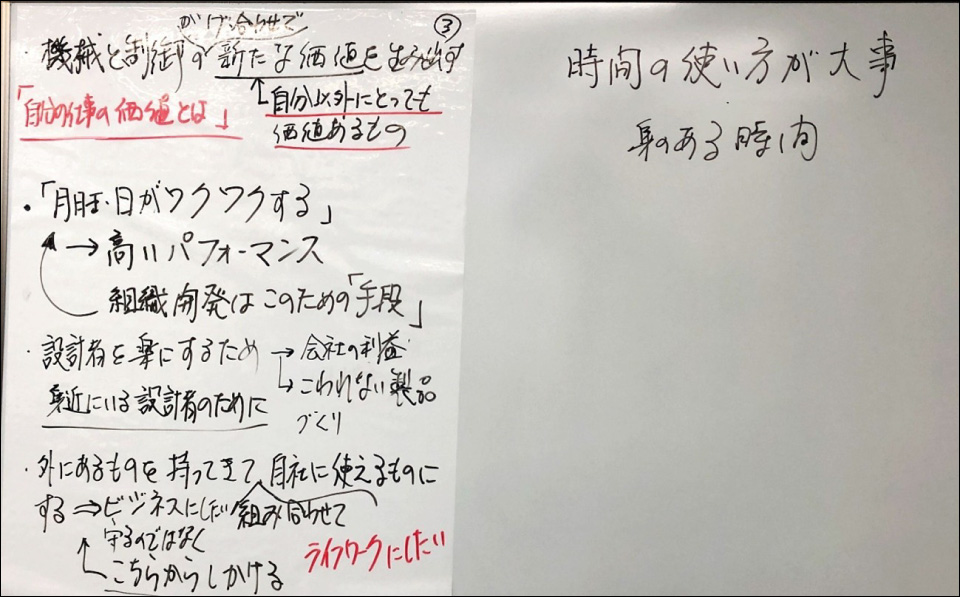 ③
かけ合らせて
・機械と制御の新たな価値を生み出す
「自分の仕事の価値とは」
自分以外にとっても
価値あるもの
・「月曜日がワクワクする」
→高いパフォーマンス
組織開発はこのための「手段」
・設計者を楽にするため→会社の利益
→こわれない製品
づくり
身近にいる設計者のために
・外にあるものを持ってきて自社に使えるものに
する⇒ビジネスにしたい 組み合わせて
守るのではなく
こちらからしかける
ライフワークにしたい
時間の使い方が大事
身のある時間